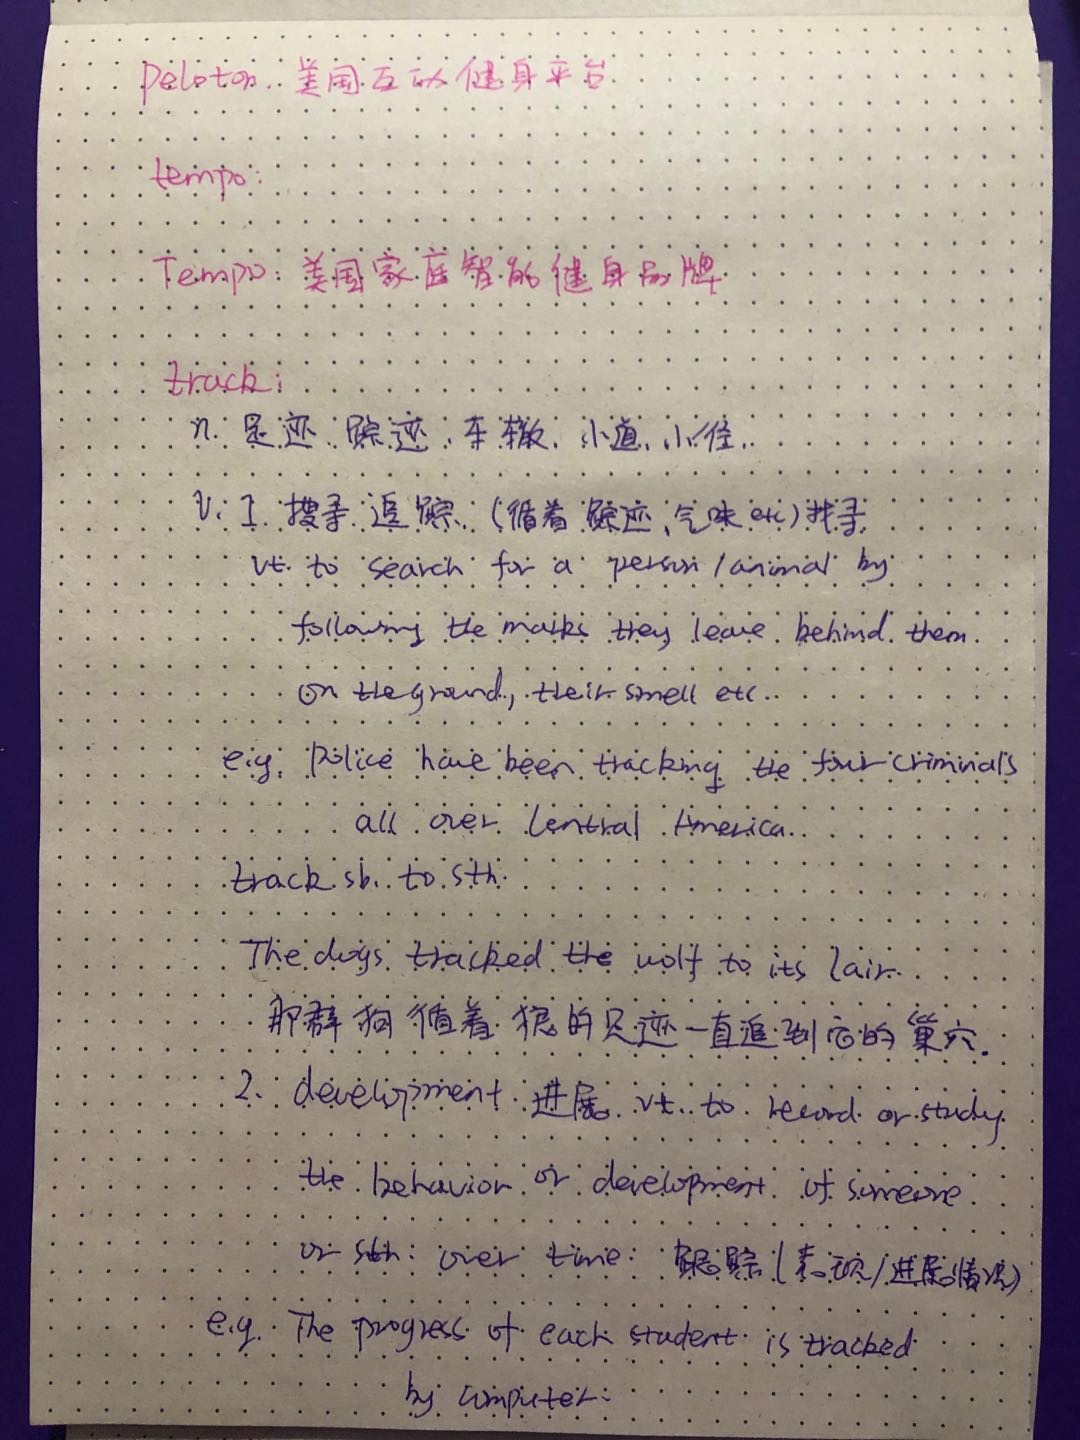 Peloton. 美国互动健身平台
tempo:
Tempo: 美国家庭智能健身品牌
track:
n. 足迹 踪迹 车辙 小道 小径
v. 1 搜寻 追踪 (循着踪迹、气味 etc) 找寻
vt. to search for a person/animal by
following the marks they leave behind them
on the ground, their smell etc.
e.g. Police have been tracking the four criminals
all over Central America.
track sb. to sth.
The dogs tracked the wolf to its lair.
那群狗循着狼的足迹一直追到它的巢穴.
2. development 进展 vt. to record or study
the behavior or development of someone
or sth. over time: 跟踪(表现/进展情况)
e.g. The progress of each student is tracked
by computer.